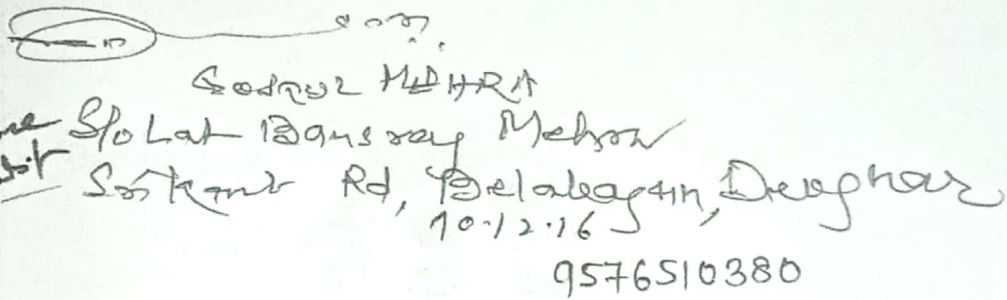 MEHRA
S/o Lat Bansray Mehra
Srikant Rd, Belabagan, Deoghar
10.12.16
9576510380